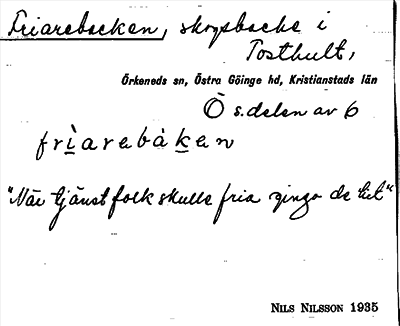 Friarebacken, skogsbacke i
Tosthult,
Örkeneds sn, Östra Göinge hd, Kristianstads län
Ö s.delen av 6
frìarebàken
"När tjänstfolk skulle fria gingo de hit"
NILS NILSSON 1935